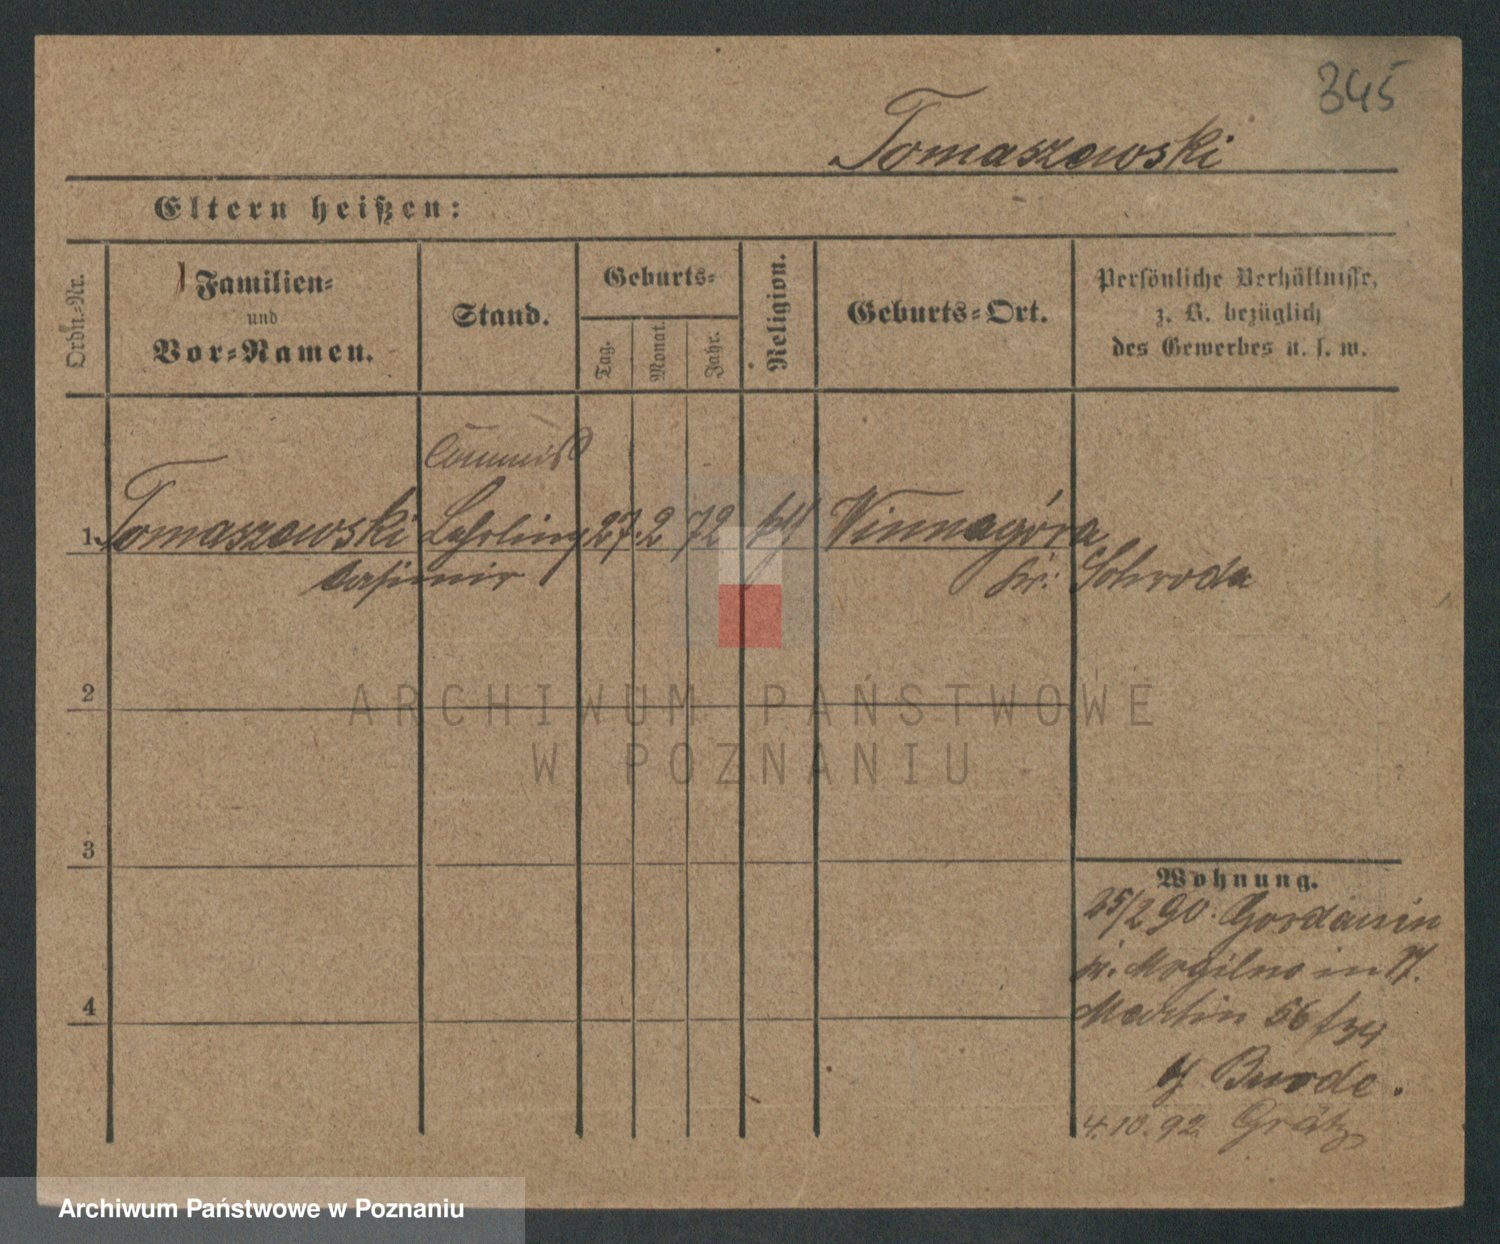 345
Tomaszewski
Eltern heißen:
Ordn.-Nr.
Familien-
und
Vor-Namen.
Stand.
Geburts-
Tag.
Monat.
Jahr.
Religion.
Geburts-Ort.
Persönliche Verhältnisse,
z. B. bezüglich
des Gewerbes u. s. w.
Commis
1. Tomaszewski Lehrling 27. 2 72 Winnagóra
Casimir Kr. Schroda
2
3
4
Wohnung.
25/2 90. Gordanin
Kr. Mogilno in St.
Martin 56
Burode.
4.10.92. Grätz
ARCHIWUM PAŃSTWOWE
W POZNANIU
Archiwum Państwowe w Poznaniu